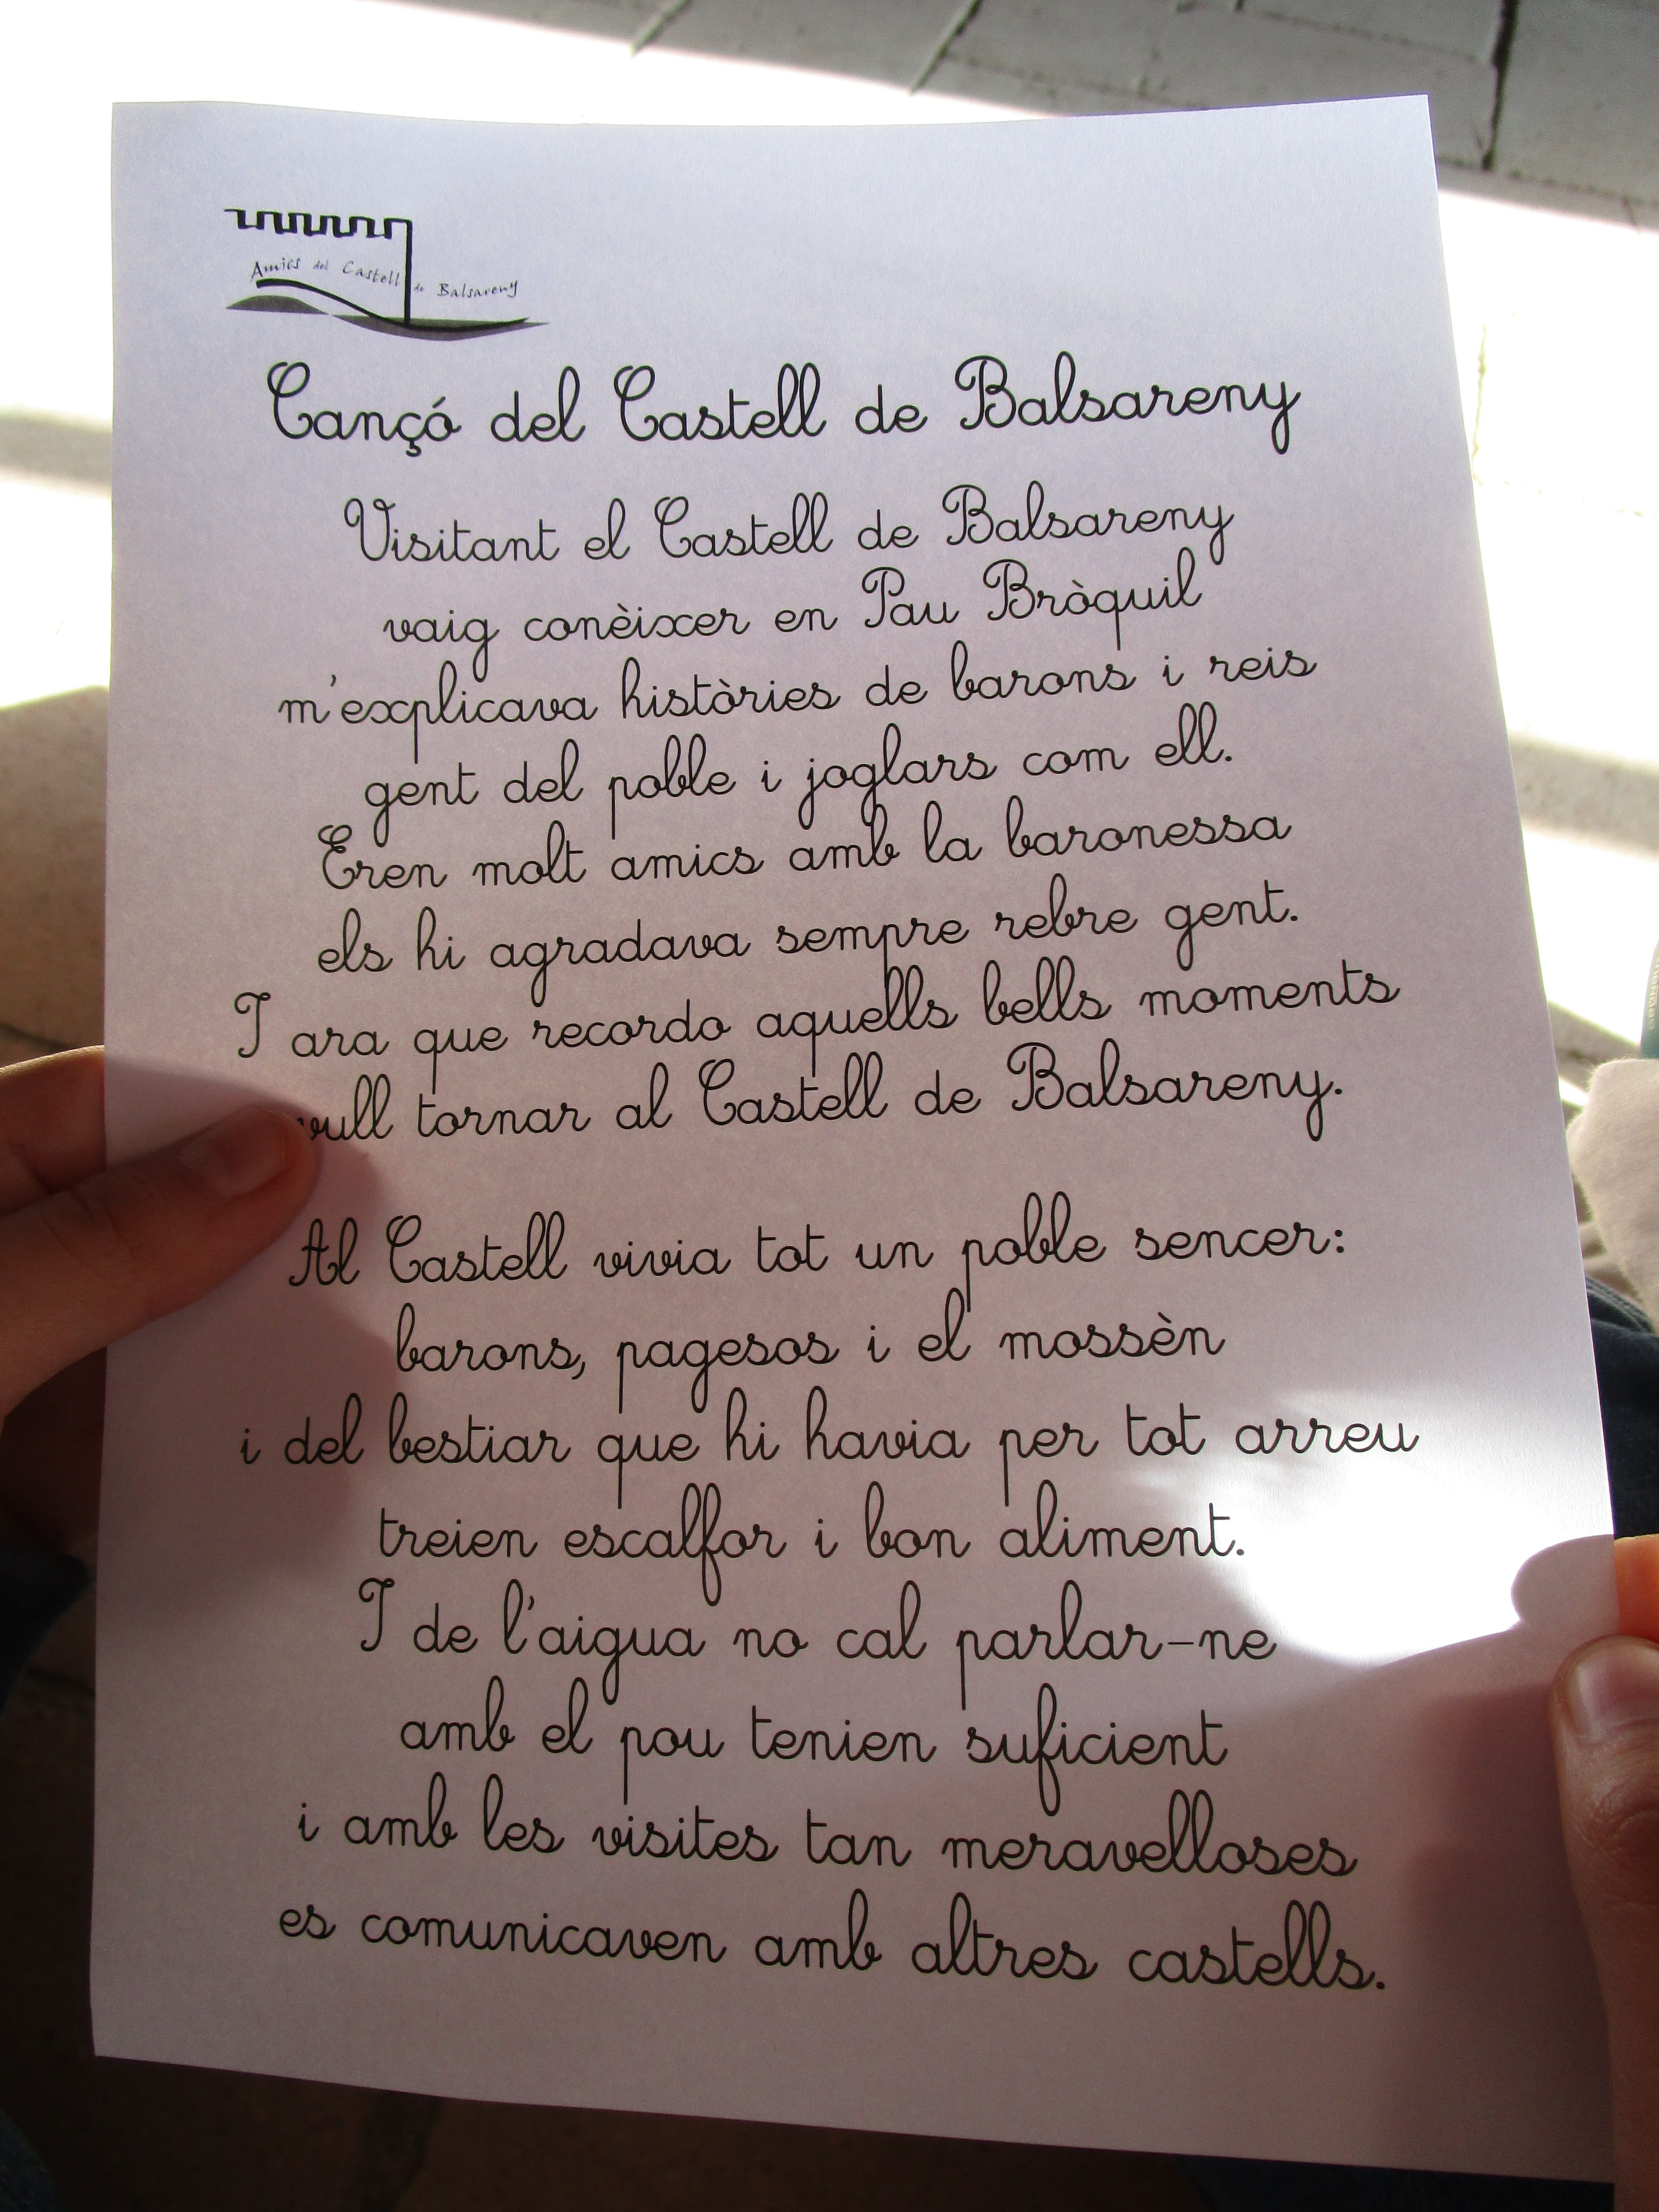 Amics del Castell de Balsareny
Cançó del Castell de Balsareny
Visitant el Castell de Balsareny
vaig conèixer en Pau Bròquil
m'explicava històries de barons i reis
gent del poble i joglars com ell.
Eren molt amics amb la baronessa
els hi agradava sempre rebre gent.
I ara que recordo aquells bells moments
vull tornar al Castell de Balsareny.
Al Castell vivia tot un poble sencer:
barons, pagesos i el mossèn
i del bestiar que hi havia per tot arreu
treien escalfor i bon aliment.
I de l'aigua no cal parlar-ne
amb el pou tenien suficient
i amb les visites tan meravelloses
es comunicaven amb altres castells.